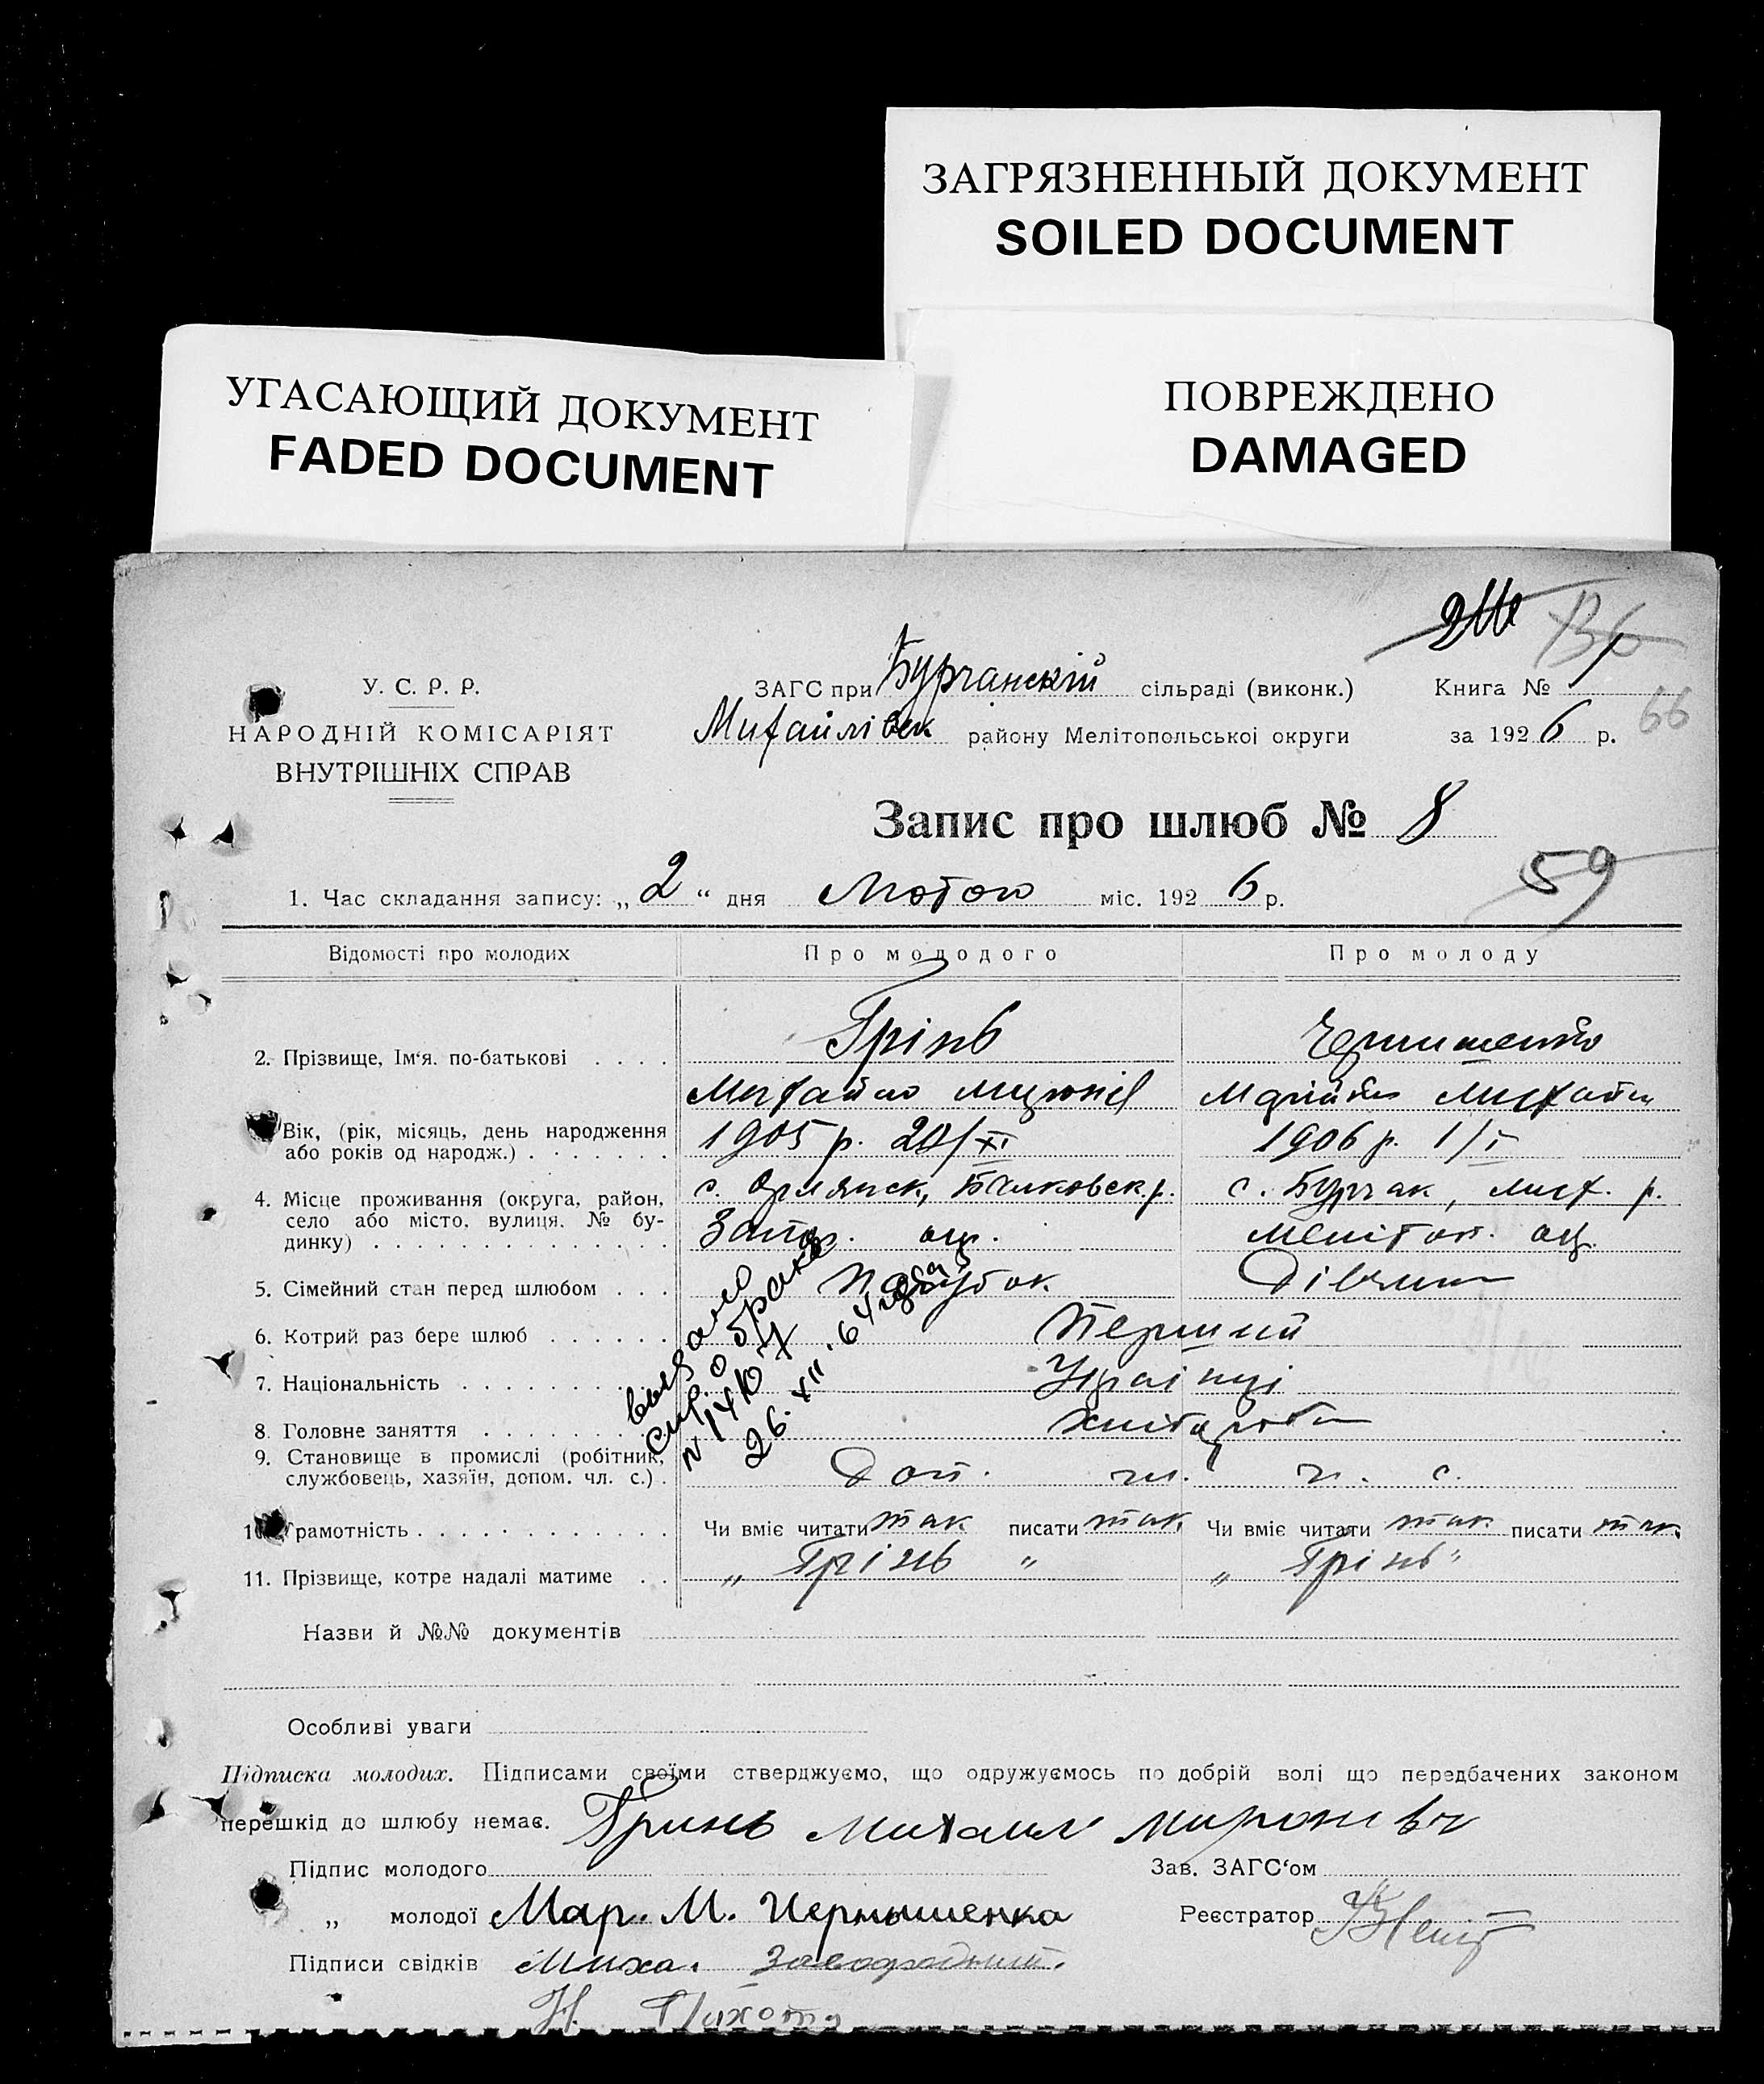 ЗАГРЯЗНЕННЫЙ ДОКУМЕНТ
SOILED DOCUMENT
УГАСАЮЩИЙ ДОКУМЕНТ
FADED DOCUMENT
ПОВРЕЖДЕНО
DAMAGED
136
У. С. Р. Р.
НАРОДНІЙ КОМІСАРІЯТ
ВНУТРІШНІХ СПРАВ
ЗАГС при Бурчанскій сільраді (виконк.) Книга №
Михайлівск району Мелітопольської округи за 1926 р. 66
Запис про шлюб № 8
59
1. Час складання запису: „2“ дня Лютого міс. 1926 р.
Відомості про молодих Про молодого Про молоду
2. Прізвище, Ім'я. по-батькові Грінь Чернишенко
Михайло Миронів Марія Михайл
Вік, (рік, місяць, день народження або років од народж.) 1905 р. 20/XI 1906 р. 1/I
4. Місце проживання (округа, район, с. Орлянск, р. с. Бурчак, Мих. р.
село або місто, вулиця. № бу-
динку) Запор. окр. Меліtop. окр.
5. Сімейний стан перед шлюбом Парубок Дівчина
6. Котрий раз бере шлюб Перший
7. Національність Українці
8. Головне заняття хлібороби
9. Становище в промислі (робітник,
службовець, хазяїн, допом. чл. с.) Доп. чл. с.
10. Грамотність Чи вміє читати так писати так Чи вміє читати так писати так
11. Прізвище, котре надалі матиме „Грінь“ „Грінь“
выдано
спр. о браке
26.XII.64 года
Назви й №№ документів
Особливі уваги
Підписка молодих. Підписами своїми стверджуємо, що одружуємось по добрій волі що передбачених законом
перешкід до шлюбу немає. Гринь Михаил Миронивч
Підпис молодого Зав. ЗАГС'ом
„ молодої Мар. М. Чернышенка Реєстратор
Підписи свідків Миха. Завгородний.
Н. Пихота